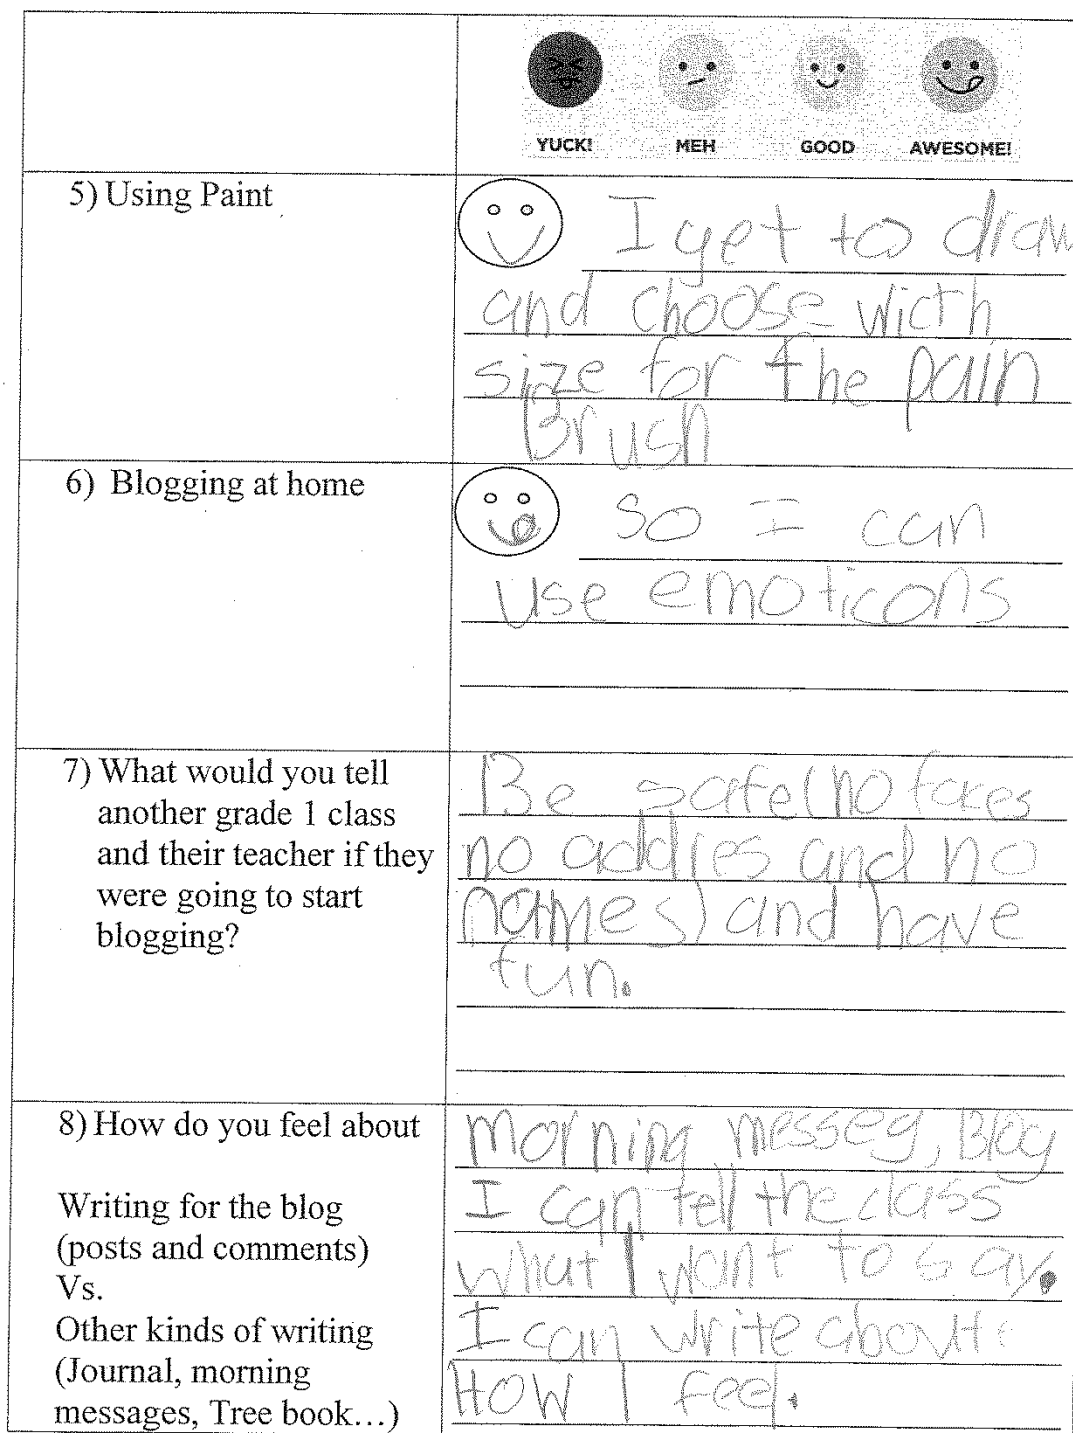 YUCK! MEH GOOD AWESOME!
5) Using Paint
I get to draw
and choose wicth
size for the pain
Brush
6) Blogging at home
so I can
use emoticons
7) What would you tell
another grade 1 class
and their teacher if they
were going to start
blogging?
Be safe (no faces
no addres and no
names) and have
fun.
8) How do you feel about
Writing for the blog
(posts and comments)
Vs.
Other kinds of writing
(Journal, morning
messages, Tree book…)
Morning messeg, Blog
I can tell the class
what I want to say.
I can write about
How I feel.